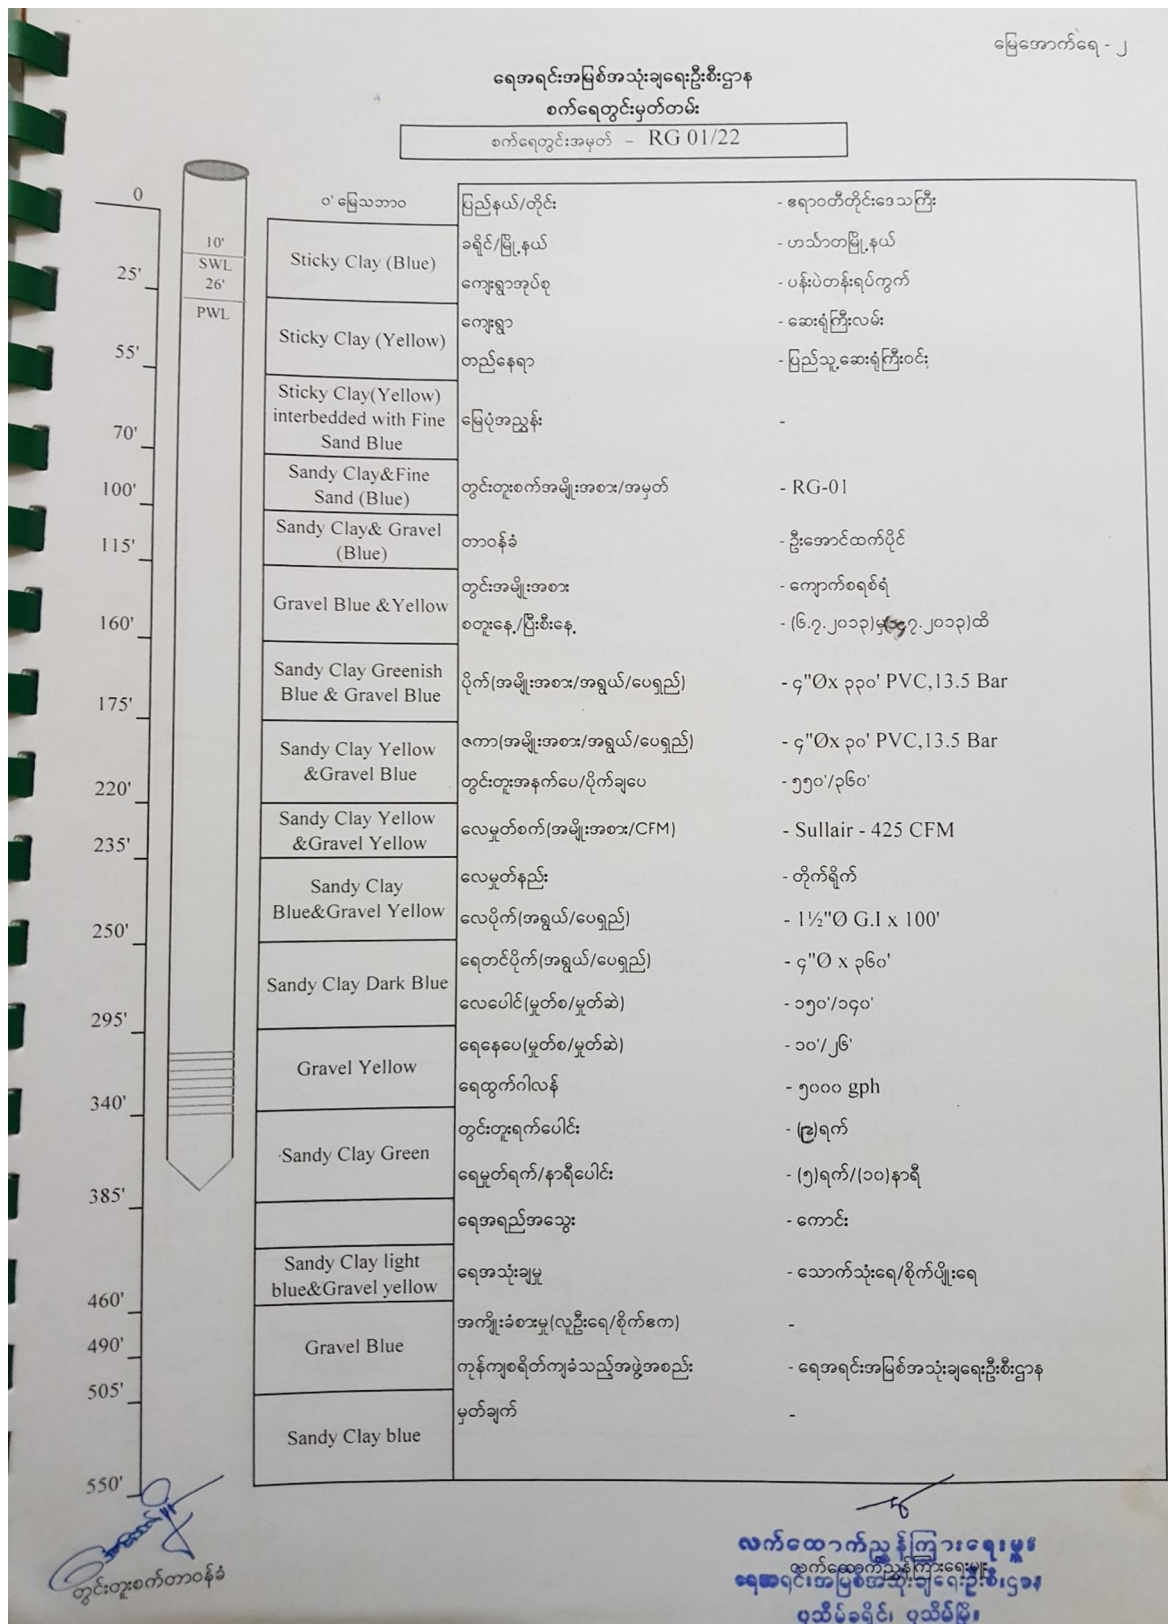 မြေအောက်ရေ - ၂
ရေအရင်းအမြစ်အသုံးချရေးဦးစီးဌာန
စက်ရေတွင်းမှတ်တမ်း
စက်ရေတွင်းအမှတ် – RG 01/22
0
25'
55'
70'
100'
115'
160'
175'
220'
235'
250'
295'
340'
385'
460'
490'
505'
550'
10'
SWL
26'
PWL
ဝ' မြေသဘာဝ
Sticky Clay (Blue)
Sticky Clay (Yellow)
Sticky Clay(Yellow)
interbedded with Fine
Sand Blue
Sandy Clay&Fine
Sand (Blue)
Sandy Clay& Gravel
(Blue)
Gravel Blue &Yellow
Sandy Clay Greenish
Blue & Gravel Blue
Sandy Clay Yellow
&Gravel Blue
Sandy Clay Yellow
&Gravel Yellow
Sandy Clay
Blue&Gravel Yellow
Sandy Clay Dark Blue
Gravel Yellow
Sandy Clay Green
Sandy Clay light
blue&Gravel yellow
Gravel Blue
Sandy Clay blue
ပြည်နယ်/တိုင်း - ဧရာဝတီတိုင်းဒေသကြီး
ခရိုင်/မြို့နယ် - ဟင်္သာတမြို့နယ်
ကျေးရွာအုပ်စု - ပန်းပဲတန်းရပ်ကွက်
ကျေးရွာ - ဆေးရုံကြီးလမ်း
တည်နေရာ - ပြည်သူ့ဆေးရုံကြီးဝင်း
မြေပုံအညွှန်း -
တွင်းတူးစက်အမျိုးအစား/အမှတ် - RG-01
တာဝန်ခံ - ဦးအောင်ထက်ပိုင်
တွင်းအမျိုးအစား - ကျောက်စရစ်ရံ
စတူးနေ့/ပြီးစီးနေ့ - (၆.၇.၂၀၁၃)မှ ၇.၂၀၁၃)ထိ
ပိုက်(အမျိုးအစား/အရွယ်/ပေရှည်) - ၄"Øx ၃၃၀' PVC,13.5 Bar
ဇကာ(အမျိုးအစား/အရွယ်/ပေရှည်) - ၄"Øx ၃၀' PVC,13.5 Bar
တွင်းတူးအနက်ပေ/ပိုက်ချပေ - ၅၅၀'/၃၆၀'
လေမှုတ်စက်(အမျိုးအစား/CFM) - Sullair - 425 CFM
လေမှုတ်နည်း - တိုက်ရိုက်
လေပိုက်(အရွယ်/ပေရှည်) - 1½"Ø G.I x 100'
ရေတင်ပိုက်(အရွယ်/ပေရှည်) - ၄"Ø x ၃၆၀'
လေပေါင်(မှုတ်စ/မှုတ်ဆဲ) - ၁၅၀'/၁၄၀'
ရေနေပေ(မှုတ်စ/မှုတ်ဆဲ) - ၁၀'/၂၆'
ရေထွက်ဂါလန် - ၅၀၀၀ gph
တွင်းတူးရက်ပေါင်း - (၉)ရက်
ရေမှုတ်ရက်/နာရီပေါင်း - (၅)ရက်/(၁၀)နာရီ
ရေအရည်အသွေး - ကောင်း
ရေအသုံးချမှု - သောက်သုံးရေ/စိုက်ပျိုးရေ
အကျိုးခံစားမှု(လူဦးရေ/စိုက်ဧက) -
ကုန်ကျစရိတ်ကျခံသည့်အဖွဲ့အစည်း - ရေအရင်းအမြစ်အသုံးချရေးဦးစီးဌာန
မှတ်ချက် -
တွင်းတူးစက်တာဝန်ခံ
လက်ထောက်ညွှန်ကြားရေးမှူး
လက်ထောက်ညွှန်ကြားရေးမှူး
ရေအရင်းအမြစ်အသုံးချရေးဦးစီးဌာန
ပုသိမ်ခရိုင်၊ ပုသိမ်မြို့။